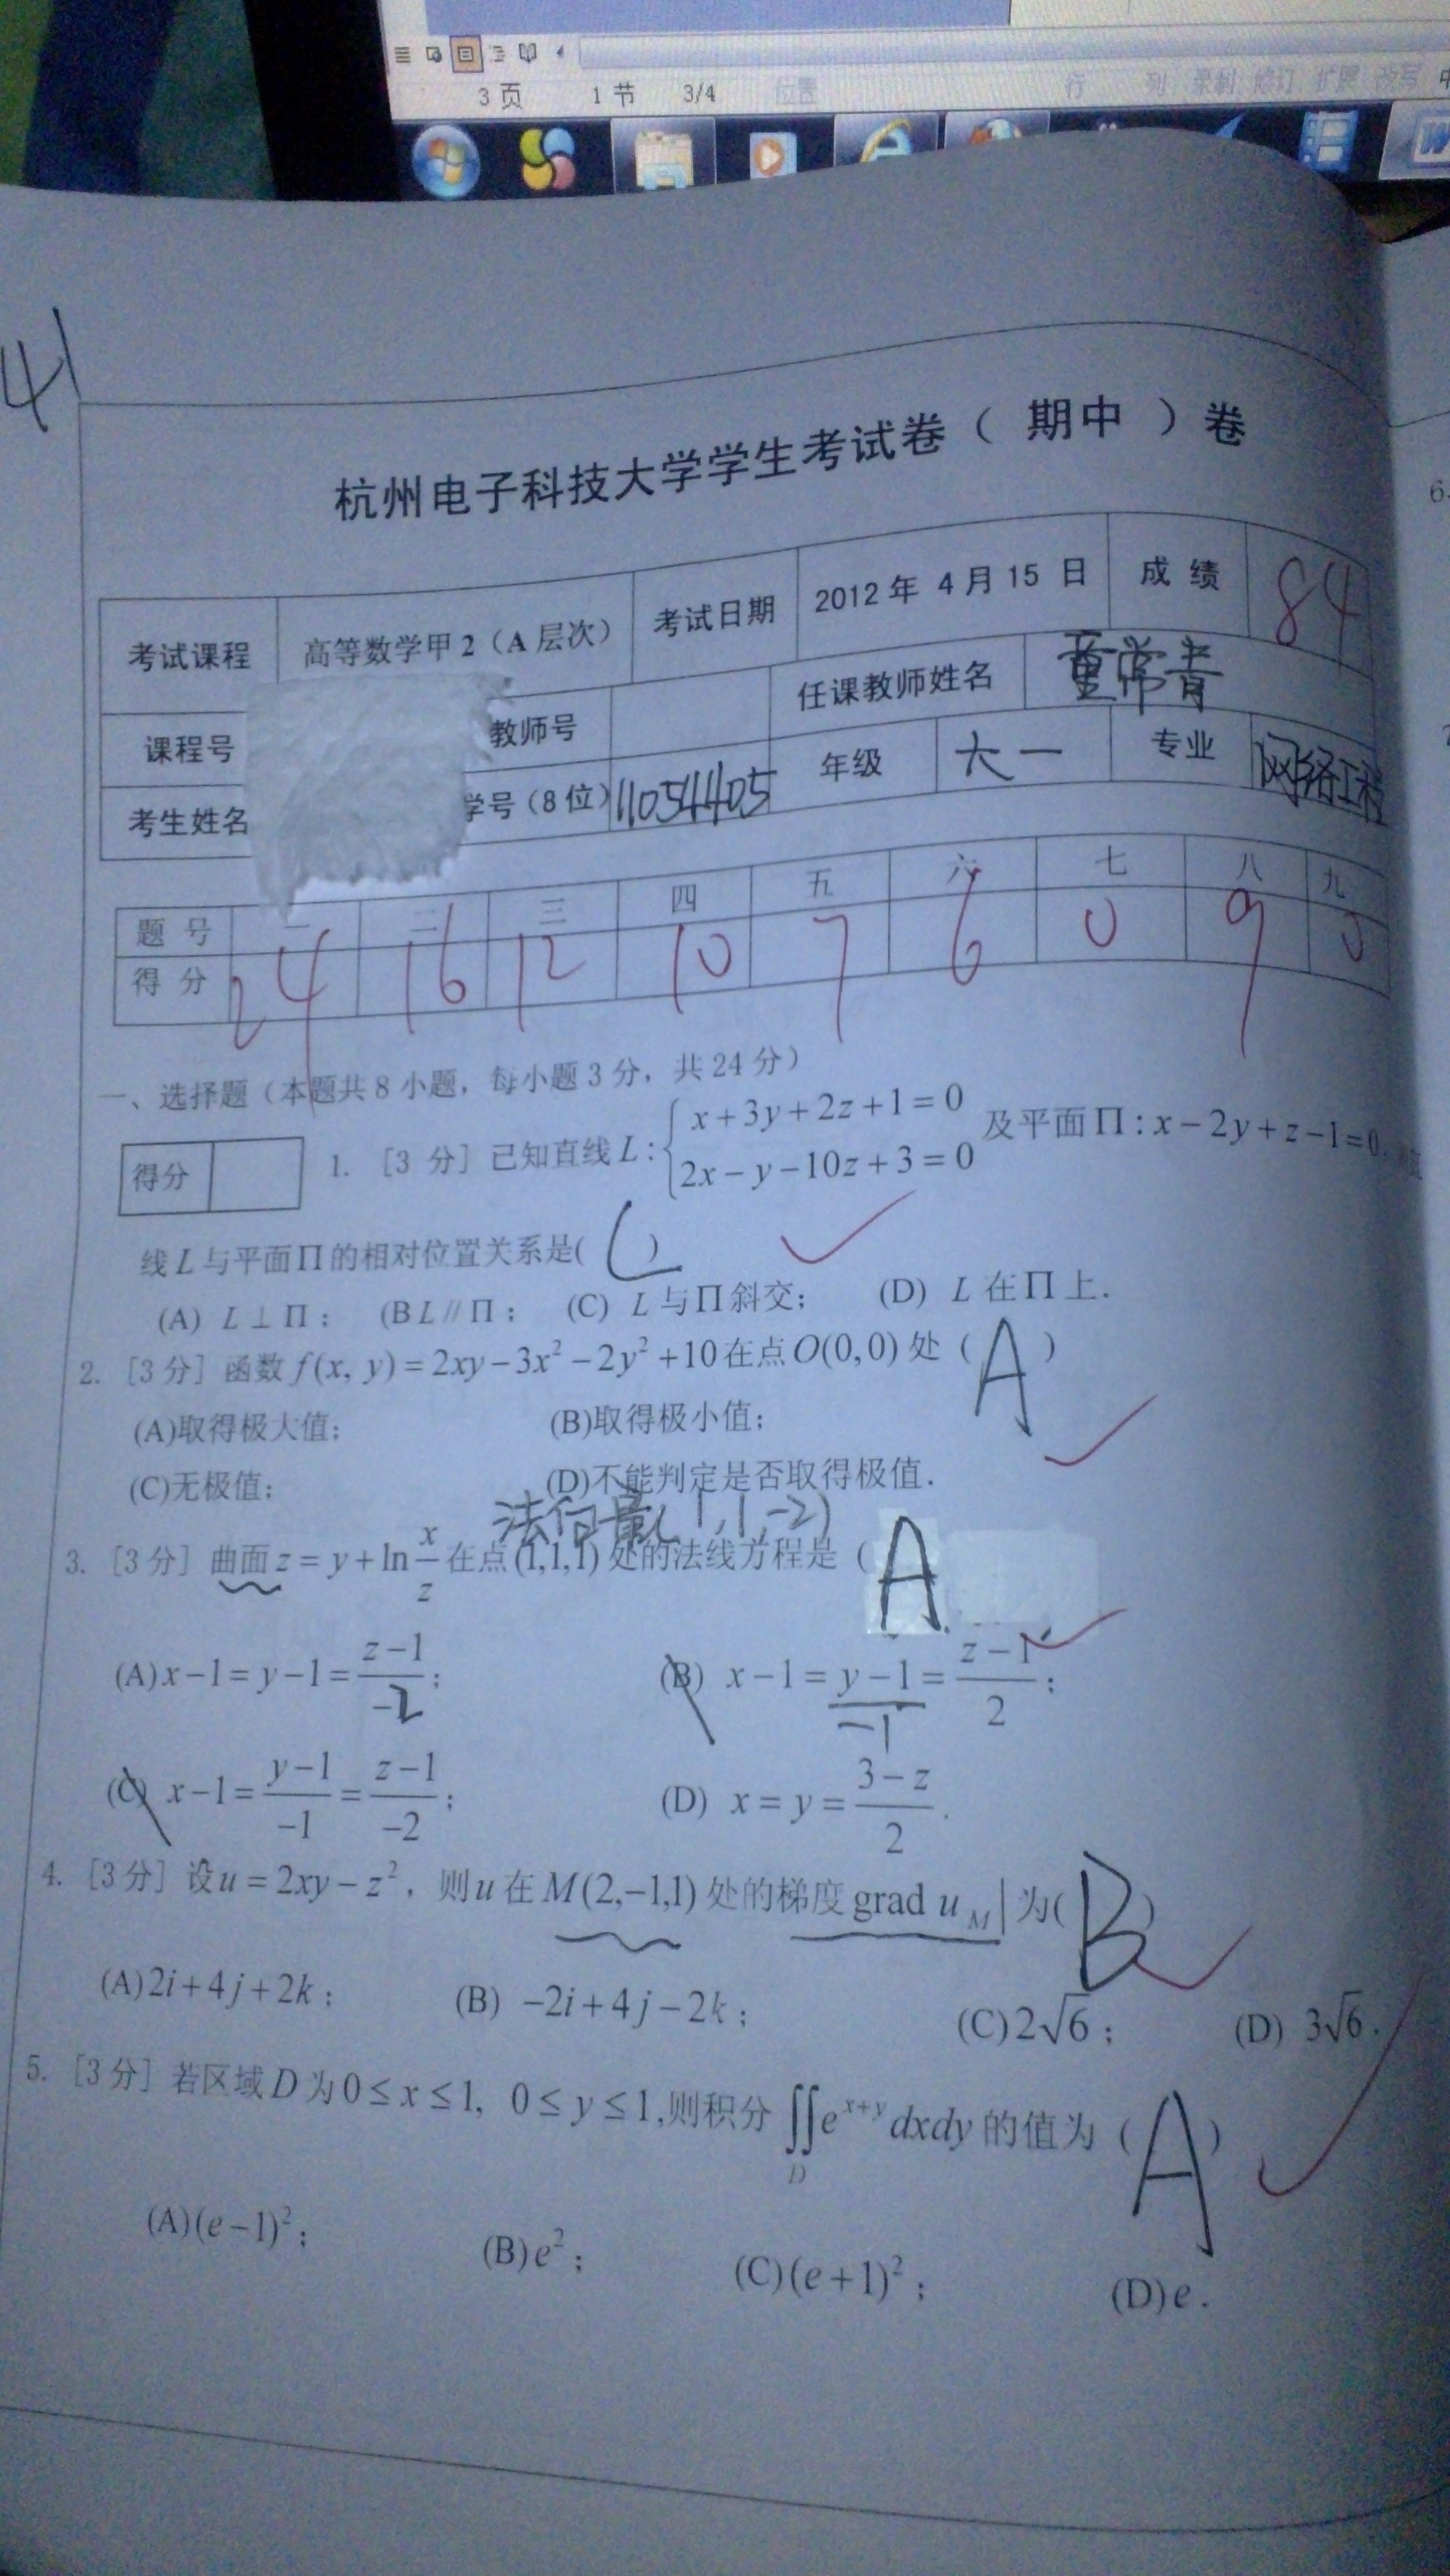 3 页 1 节 3/4 位置 行 列 录制 修订 扩展 改写
41
杭州电子科技大学学生考试卷（ 期中 ）卷
考试课程 高等数学甲 2（A 层次） 考试日期 2012 年 4 月 15 日 成 绩 84
课程号 教师号 任课教师姓名 董常青
考生姓名 学号（8 位） 11054405 年级 大一 专业 网络工程
题 号 二 三 四 五 六 七 八 九
得 分 24 16 12 10 7 6 0 9 0
一、选择题（本题共 8 小题，每小题 3 分，共 24 分）
得分
1. ［3 分］已知直线 L : { x+3y+2z+1=0 2x−y−10z+3=0 及平面 Π : x−2y+z−1=0,
线 L 与平面 Π 的相对位置关系是( C )
(A) L⊥Π； (B L//Π； (C) L 与 Π 斜交； (D) L 在 Π 上.
2. ［3 分］函数 f(x, y) = 2xy−3x²−2y²+10 在点 O(0,0) 处（ A ）
(A)取得极大值； (B)取得极小值；
(C)无极值； (D)不能判定是否取得极值.
法向量(1,1,-2)
3. ［3 分］曲面 z = y + ln x/z 在点 (1,1,1) 处的法线方程是（ A
(A) x−1 = y−1 = (z−1)/−2； (B) x−1 = y−1 = (z−1)/2；
−1
(C) x−1 = (y−1)/−1 = (z−1)/−2； (D) x = y = (3−z)/2.
4. ［3 分］设 u = 2xy−z²，则 u 在 M(2,−1,1) 处的梯度 grad u_M| 为( B )
(A) 2i+4j+2k； (B) −2i+4j−2k； (C) 2√6； (D) 3√6.
5. ［3 分］若区域 D 为 0≤x≤1, 0≤y≤1,则积分 ∬_D e^{x+y}dxdy 的值为（ A ）
(A) (e−1)²； (B) e²； (C) (e+1)²； (D) e.
6.